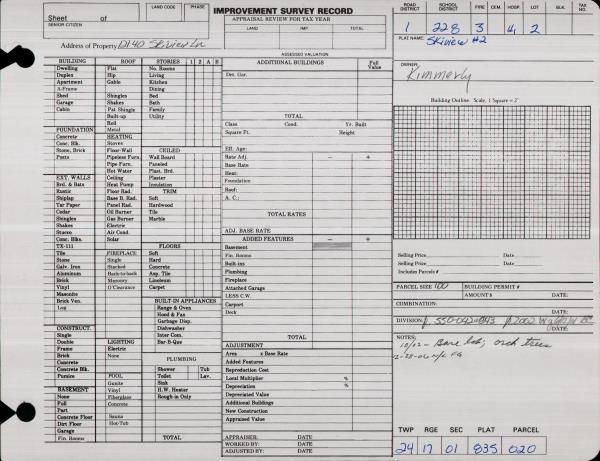 Sheet of
SENIOR CITIZEN
LAND CODE PHASE
IMPROVEMENT SURVEY RECORD
APPRAISAL REVIEW FOR TAX YEAR
LAND IMP TOTAL
ROAD DISTRICT SCHOOL DISTRICT FIRE CEM. HOSP. LOT BLK. TAX NO.
1 228 3 4 2
PLAT NAME: SKIVIEW #2
Address of Property 12140 Skiview Ln
ASSESSED VALUATION
OWNER:
Kimmerly
Building Outline Scale, 1 Square = 2'
BUILDING ROOF STORIES 1 2 A B
Dwelling Flat No. Rooms
Duplex Hip Living
Apartment Gable Kitchen
A-Frame Dining
Shed Shingles Bed
Garage Shakes Bath
Cabin Pat Shingle Family
Built-up Utility
Roll
FOUNDATION Metal
Concrete HEATING
Conc. Blk. Stoves CEILED
Stone, Brick Floor-Wall Wall Board
Posts Pipeless Furn. Paneled
Pipe Furn. Plast. Brd.
Hot Water Plaster
EXT. WALLS Ceiling Insulation
Brd. & Bats Heat Pump TRIM
Rustic Floor Rad. Soft
Shiplap Base B. Rad. Hardwood
Tar Paper Panel Rad. Tile
Cedar Oil Burner Marble
Shingles Gas Burner
Shakes Electric
Stucco Air Cond.
Conc. Blks. Solar FLOORS
TX-111 Soft
Tile FIREPLACE Hard
Stone Single Concrete
Galv. Iron Stacked Asp. Tile
Aluminum Back-to-back Linoleum
Brick Masonry Carpet
Vinyl O'Clearance
Masonite BUILT-IN APPLIANCES
Brick Ven. Range & Oven
Log Hood & Fan
Garbage Disp.
CONSTRUCT. Dishwasher
Single Inter Com.
Double LIGHTING Bar-B-Que
Frame Electric
Brick None PLUMBING
Concrete Shower Tub
Concrete Blk. Toilet Lav.
Pumice POOL Sink
Gunite H.W. Heater
BASEMENT Vinyl Rough-in Only
None Fiberglass
Full Concrete
Part
Concrete Floor Sauna
Dirt Floor Hot-Tub
Garage
Fin. Rooms TOTAL
ADDITIONAL BUILDINGS Full Value
Det. Gar.
TOTAL
Class Cond. Yr. Built
Square Ft. Height
Eff. Age:
Rate Adj. − +
Base Rate
Heat:
Foundation
Roof:
A. C.:
TOTAL RATES
ADJ. BASE RATE
ADDED FEATURES − +
Basement
Fin. Rooms
Built-ins
Plumbing
Fireplace
Attached Garage
LESS C.W.
Carport
Deck
TOTAL
ADJUSTMENT
Area x Base Rate
Added Features
Reproduction Cost
Local Multiplier %
Depreciation %
Depreciated Value
Additional Buildings
New Construction
Appraised Value
APPRAISER: DATE
WORKED BY: DATE
ADJUSTED BY: DATE
Selling Price Date
Selling Price Date
Includes Parcel #s
PARCEL SIZE BUILDING PERMIT #
AMOUNT $ DATE:
COMBINATION:
DATE:
DIVISION:
DATE:
NOTES:
TWP RGE SEC PLAT PARCEL
24 17 01 835 020